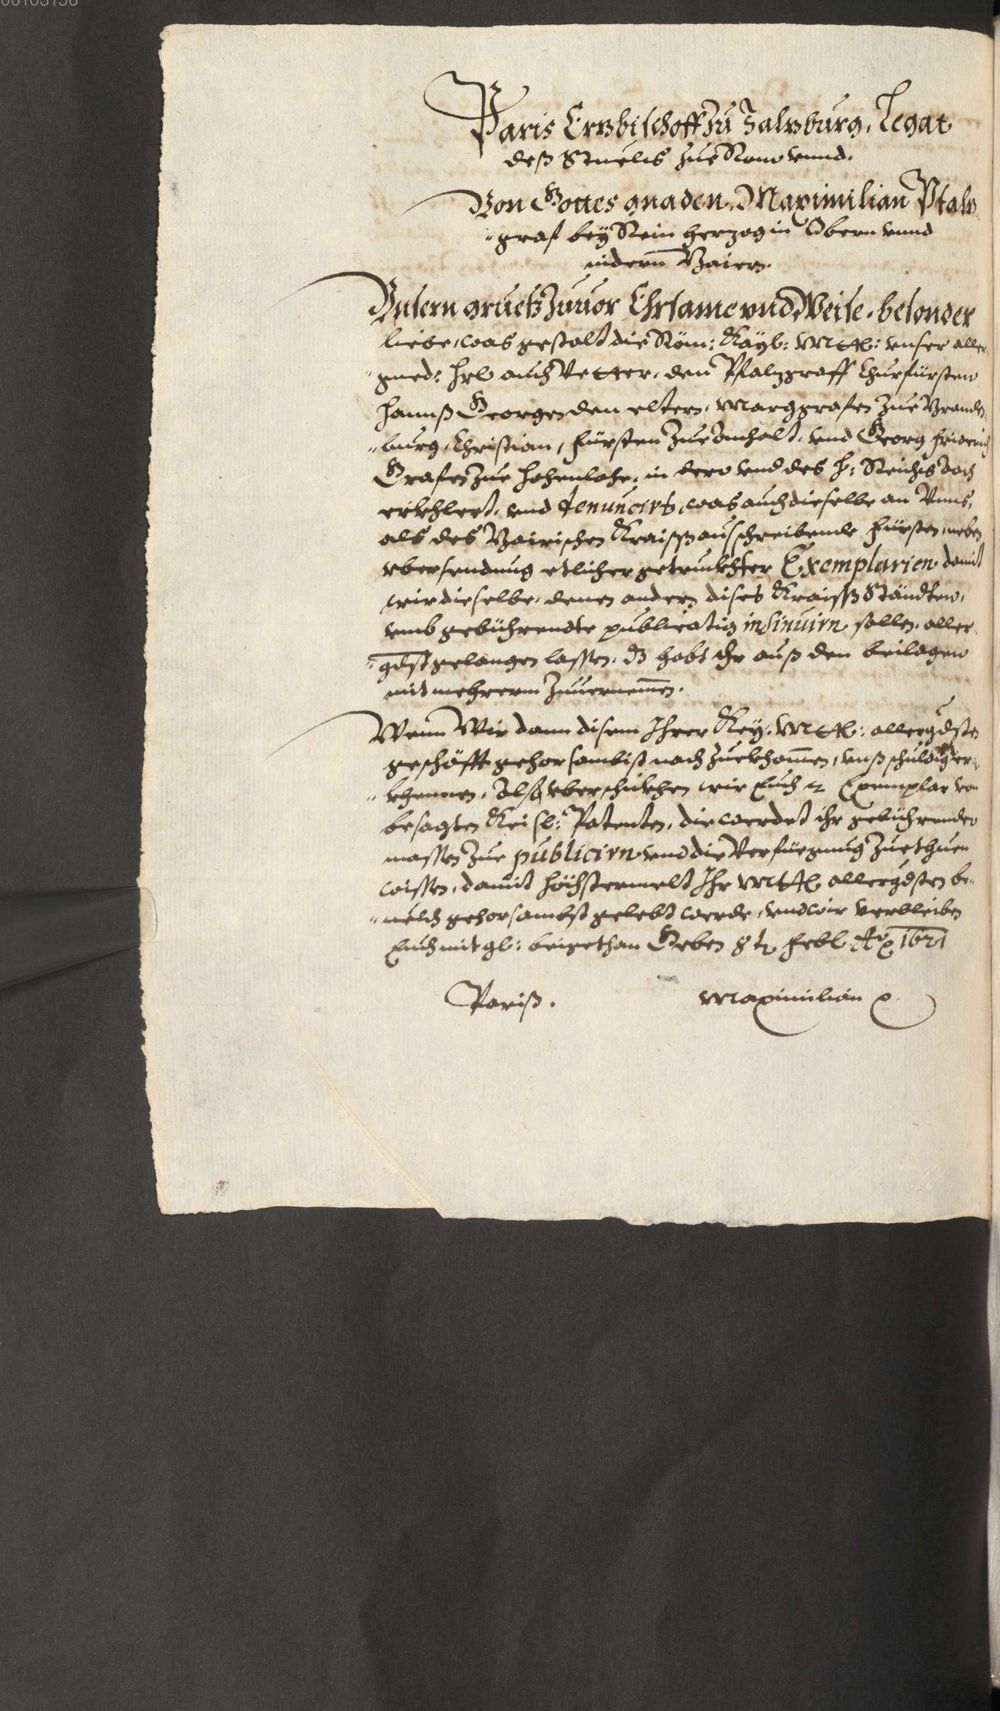 00103156
Paris Ertzbischoff zu Saltzburg, Legat
deß Stuels zue Rom vnnd.
Von Gottes gnaden Maximilian Pfaltz
graf bey Rein Herzog in Obern vnnd
nidern Baiern.
Vnsern gruetz zuuor Ehrsame vnd Weise, besonder
liebe, was gestalt die Röm: Kayß: Mtt: vnser aller
gned: Herr auch Vetter, den Pfalzgraff Churfürsten
Hannß Georgen den eltern, Marggrafen zue Branden
burg, Christian, Fürsten zue Anhalt, vnd Georg Friderich
Grafen zue Hohenlohe, in dero vnd des H: Reichs Acht
erkhlert, vnd denuncirt, was auch dieselbe an Vnns,
als des Bairischen Kraiß ausschreibende Fürsten, neben
vbersendung etlicher getruckhter Exemplarien damit
wir dieselbe, denen andern dises Kraiß Ständten,
vmb gebührende publicatig insinuirn sollen, aller
gdst gelangen lassen, dz habt Ihr auß den beilagen
mit mehrerm zuuernemen.
Wann Wir dann disem Ihrer Key: Mtt: allergdsten
geschäfft gehorsambist nach zuekhomen, vnß schuldig er
khennen, Also vberschickhen wir Euch Exemplar von
besagten Keisl: Patenten, die werdet ihr gebührender
massen zue publicirn vnd die Verfüegung zuethuen
wissen, damit höchstermelt Ihr Mtt allergdsten be
uelch gehorsambst gelebt werde, vnd wir verbleiben
Euch mit gl: beigethan Geben 8 Febr Ao 1621
Pariß. Maximilian